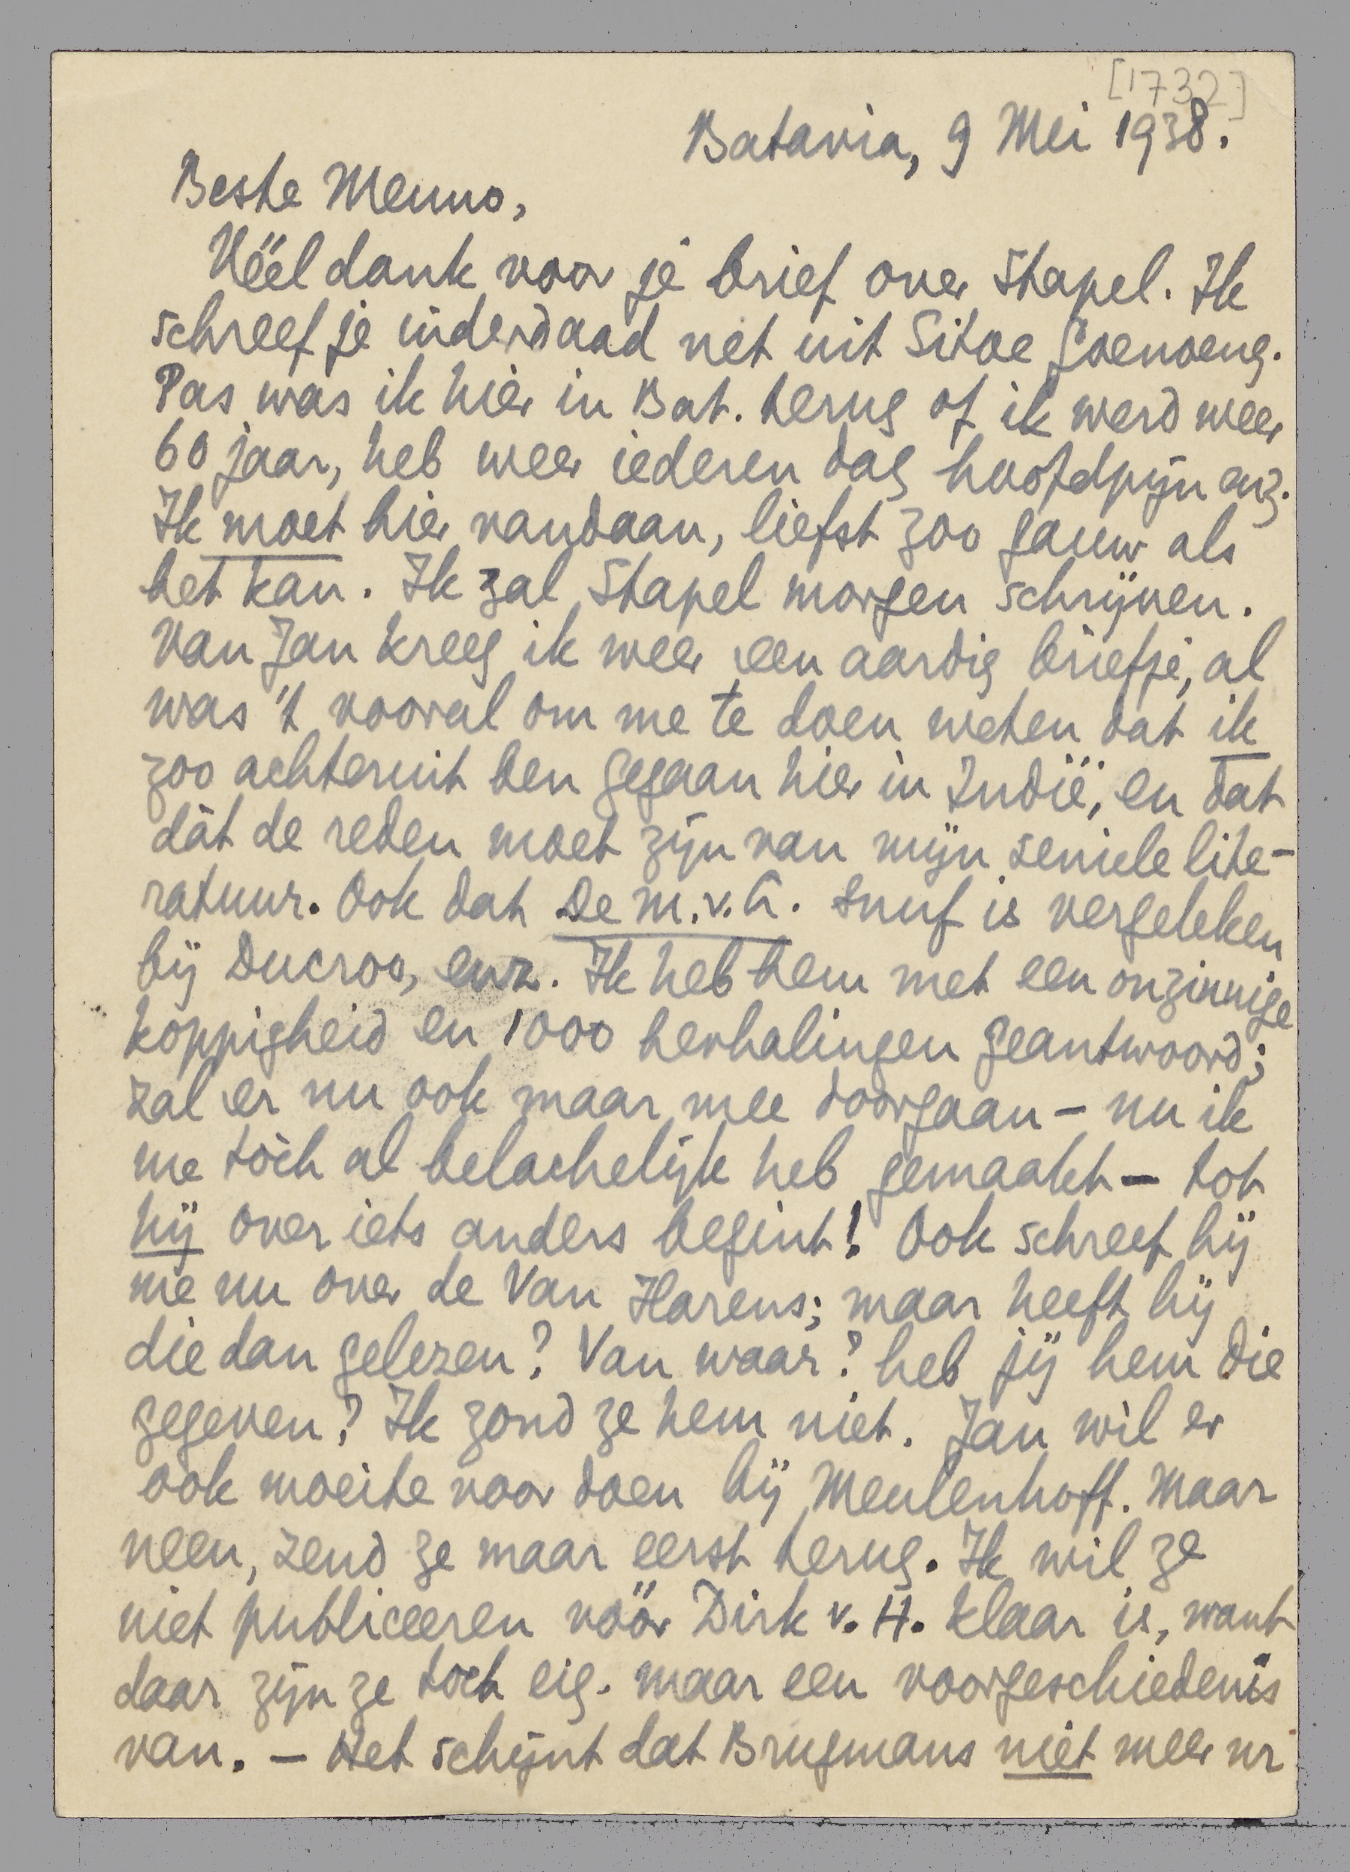 [1732]
Batavia, 9 Mei 1938.
Beste Menno,
Véél dank voor je brief over Stapel. Ik
schreef je inderdaad net uit Sitoe Goenoeng.
Pas was ik hier in Bat. terug of ik werd weer
60 jaar, heb weer iederen dag hoofdpijn enz.
Ik moet hier vandaan, liefst zoo gauw als
het kan. Ik zal Stapel morgen schrijven.
Van Jan kreeg ik weer een aardig briefje, al
was 't vooral om me te doen weten dat ik
zoo achteruit ben gegaan hier in Indië, en dat
dàt de reden moet zijn van mijn seniele lite-
ratuur. Ook dat De M.v.A. snuf is vergeleken
bij Ducroo, enz. Ik heb hem met een onzinnige
koppigheid en 1000 herhalingen geantwoord;
zal er nu ook maar mee doorgaan – nu ik
me tòch al belachelijk heb gemaakt – tot
hij over iets anders begint! Ook schreef hij
me nu over de Van Harens; maar heeft hij
die dan gelezen? Van waar? heb jij hem die
gegeven? Ik zond ze hem niet. Jan wil er
ook moeite voor doen bij Meulenhoff. Maar
neen, zend ze maar eerst terug. Ik wil ze
niet publiceeren vóór Dirk v. H. klaar is, want
daar zijn ze toch eig. maar een voorgeschiedenis
van. – Het schijnt dat Brugmans niet meer nr